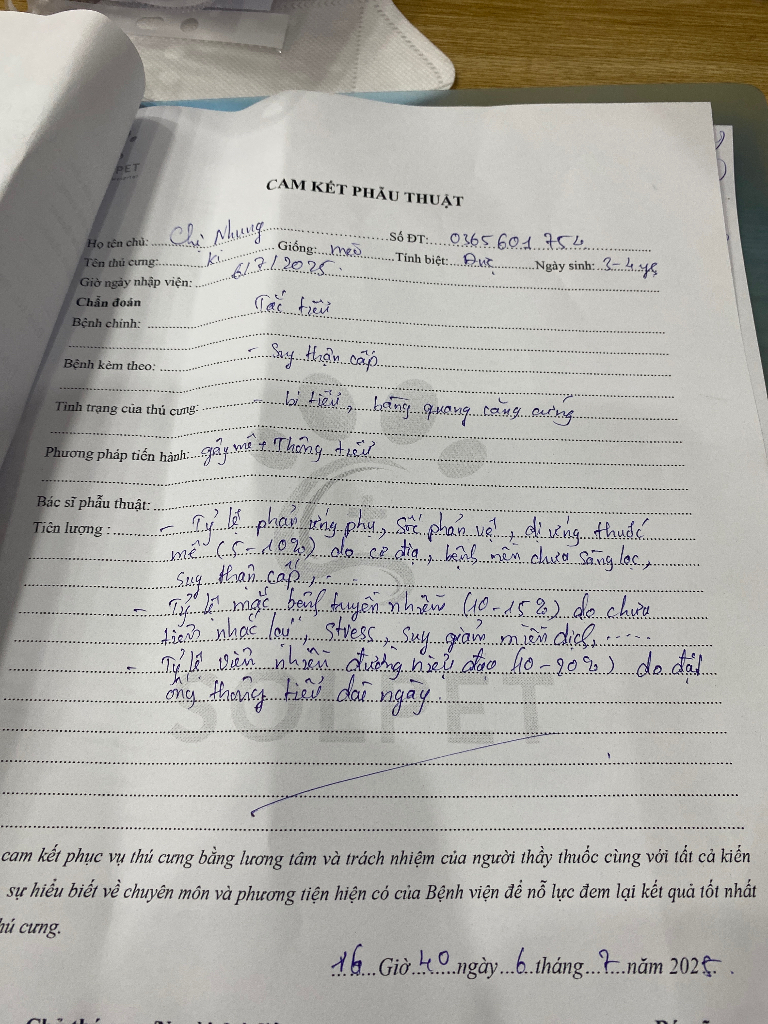 PET
CAM KẾT PHẪU THUẬT
Họ tên chủ: Chị Nhung Số ĐT: 0365601754
Tên thú cưng: Ki Giống: mèo Tính biệt: Đực Ngày sinh: 3-4 ys
Giờ ngày nhập viện: 6/7/2025.
Chẩn đoán
Bệnh chính: Tắc tiểu
Bệnh kèm theo: - Suy thận cấp
Tình trạng của thú cưng: - bí tiểu, bàng quang căng cứng
Phương pháp tiến hành: gây mê + Thông tiểu
Bác sĩ phẫu thuật:
Tiên lượng: - Tỷ lệ phản ứng phụ, sốc phản vệ, dị ứng thuốc
mê (5-10%) do cơ địa, bệnh nền chưa sàng lọc,
suy thận cấp,...
- Tỷ lệ mắc bệnh truyền nhiễm (10-15%) do chưa
tiêm nhắc lại, stress, suy giảm miễn dịch, ......
- Tỷ lệ viêm nhiễm đường niệu đạo (10-20%) do đặt
ống thông tiểu dài ngày.
SOLPET
cam kết phục vụ thú cưng bằng lương tâm và trách nhiệm của người thầy thuốc cùng với tất cả kiến
sự hiểu biết về chuyên môn và phương tiện hiện có của Bệnh viện để nỗ lực đem lại kết quả tốt nhất
thú cưng.
16 Giờ 40 ngày 6 tháng 7 năm 2025.